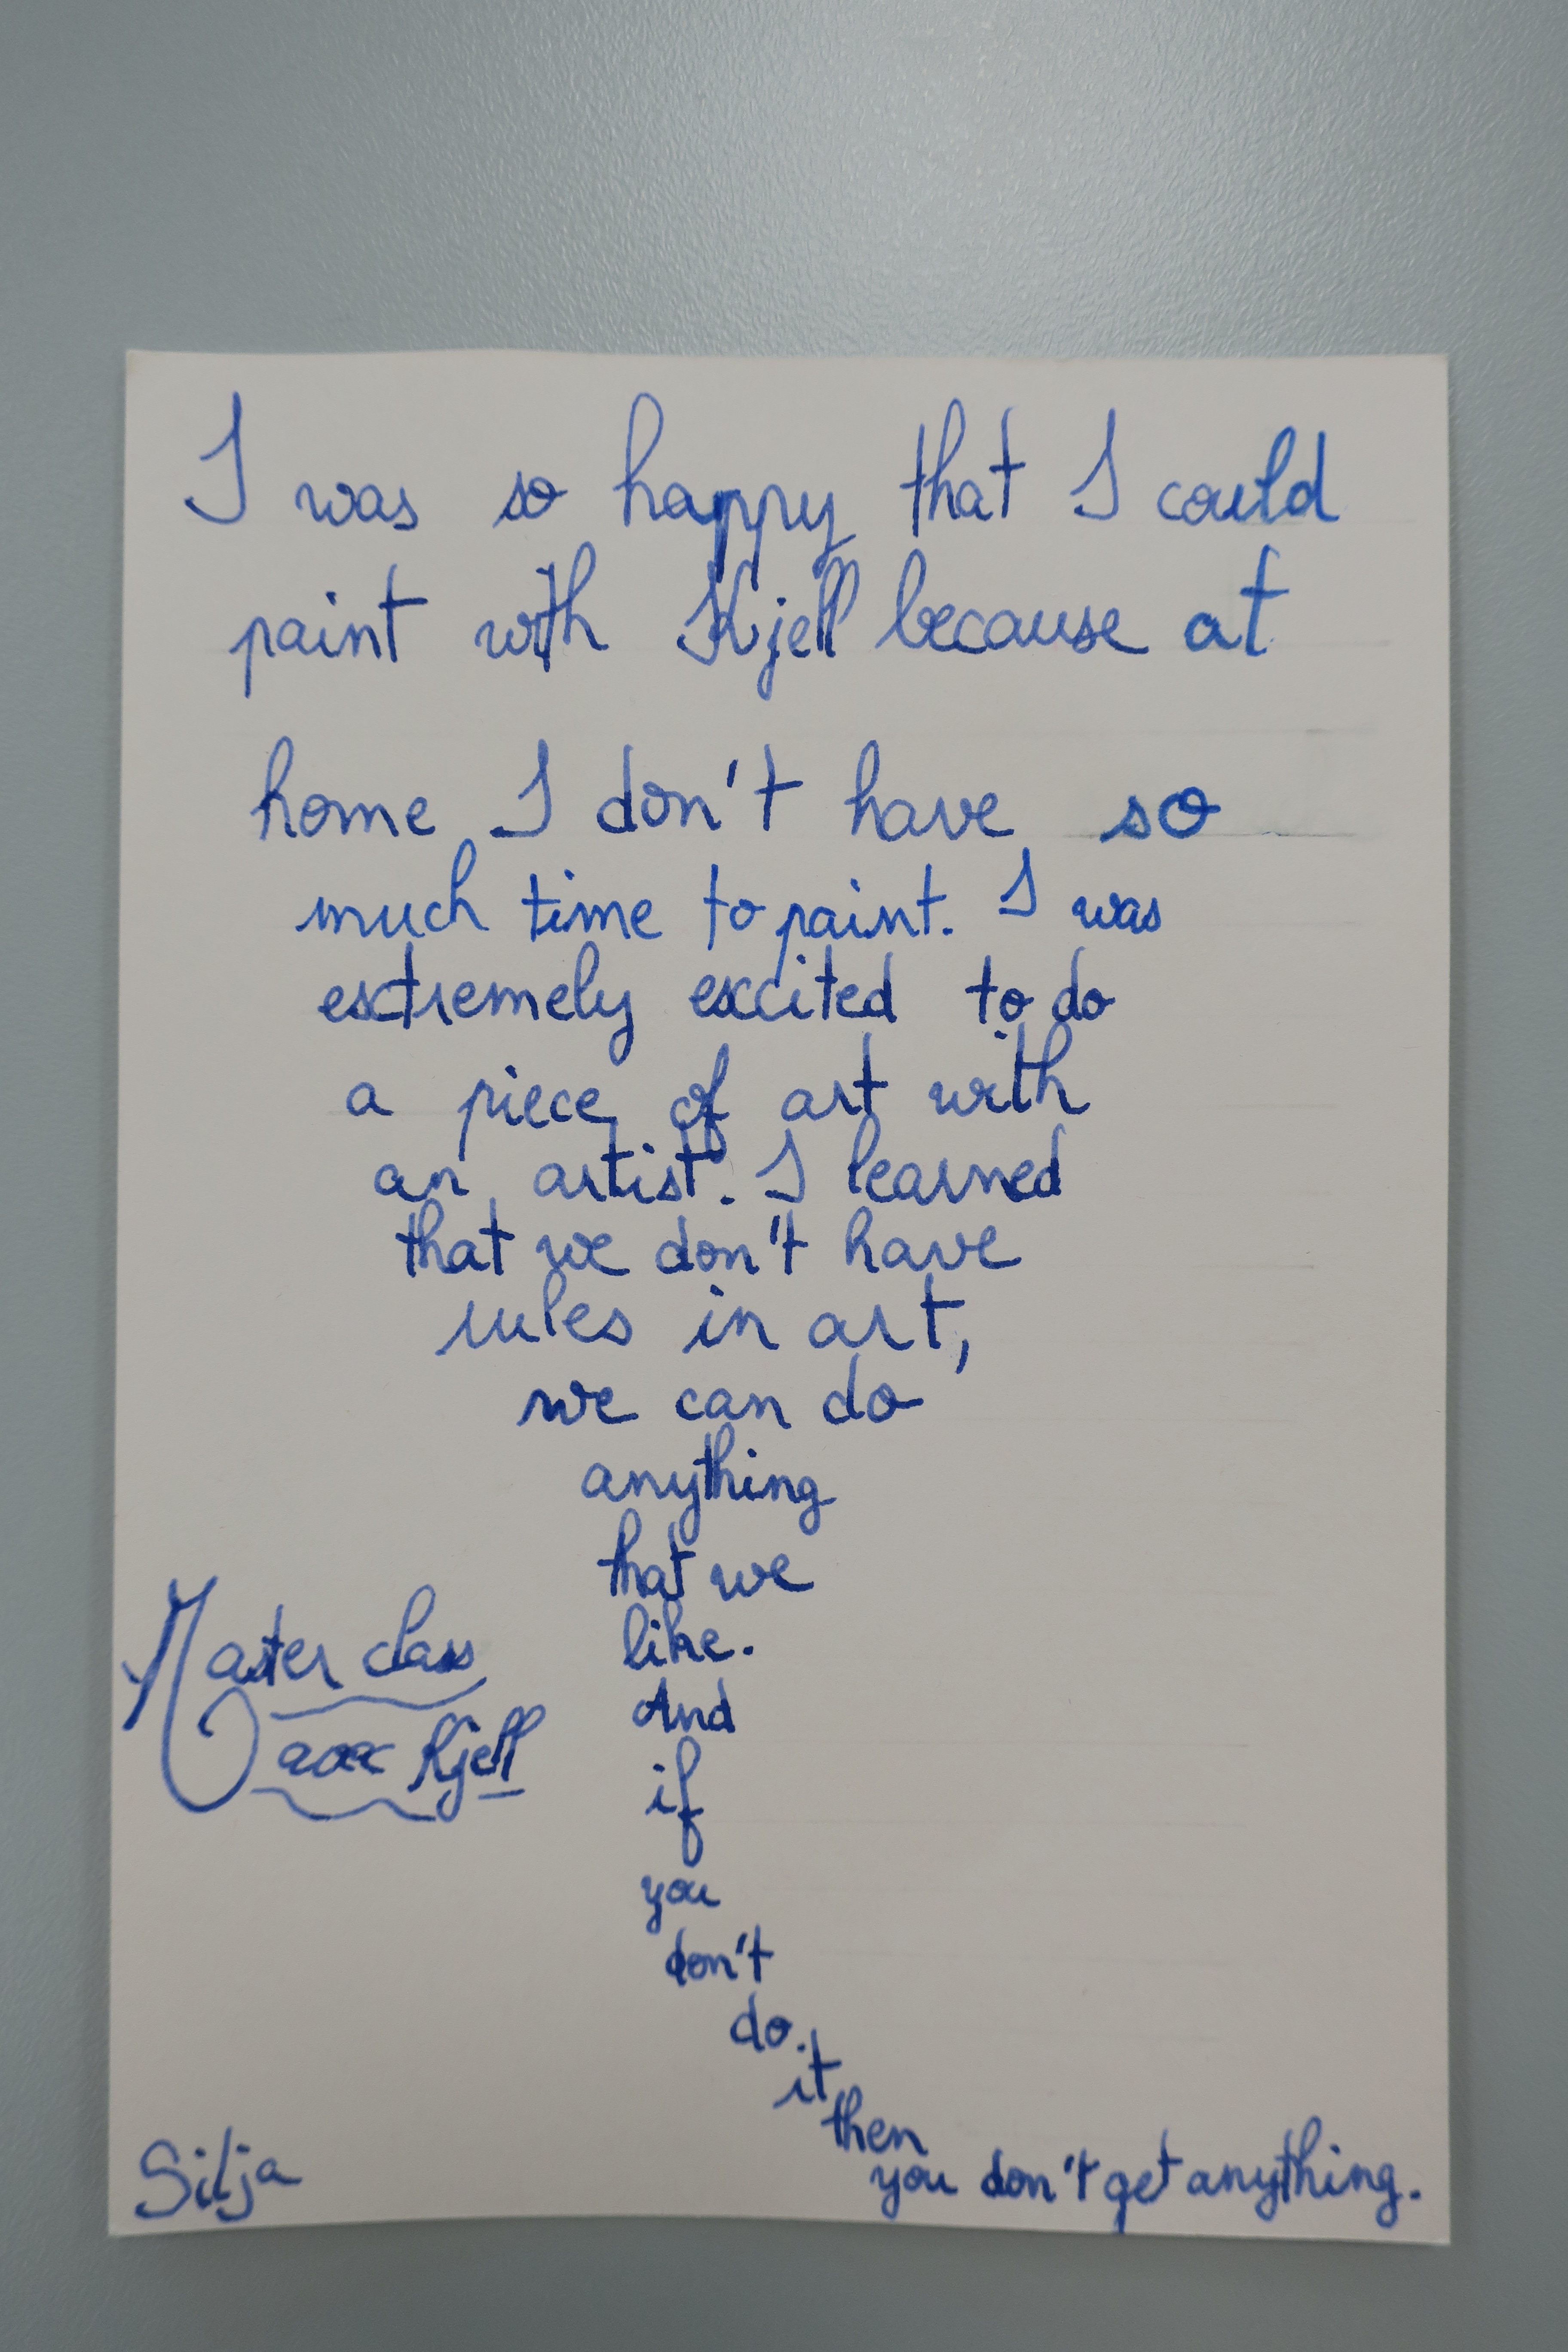 I was so happy that I could
paint with Kjell because at
home I don't have so
much time to paint. I was
extremely excited to do
a piece of art with
an artist. I learned
that we don't have
rules in art,
we can do
anything
that we
like.
And
if
you
don't
do
it
then
you don't get anything.
Master class
Kjell
Silja